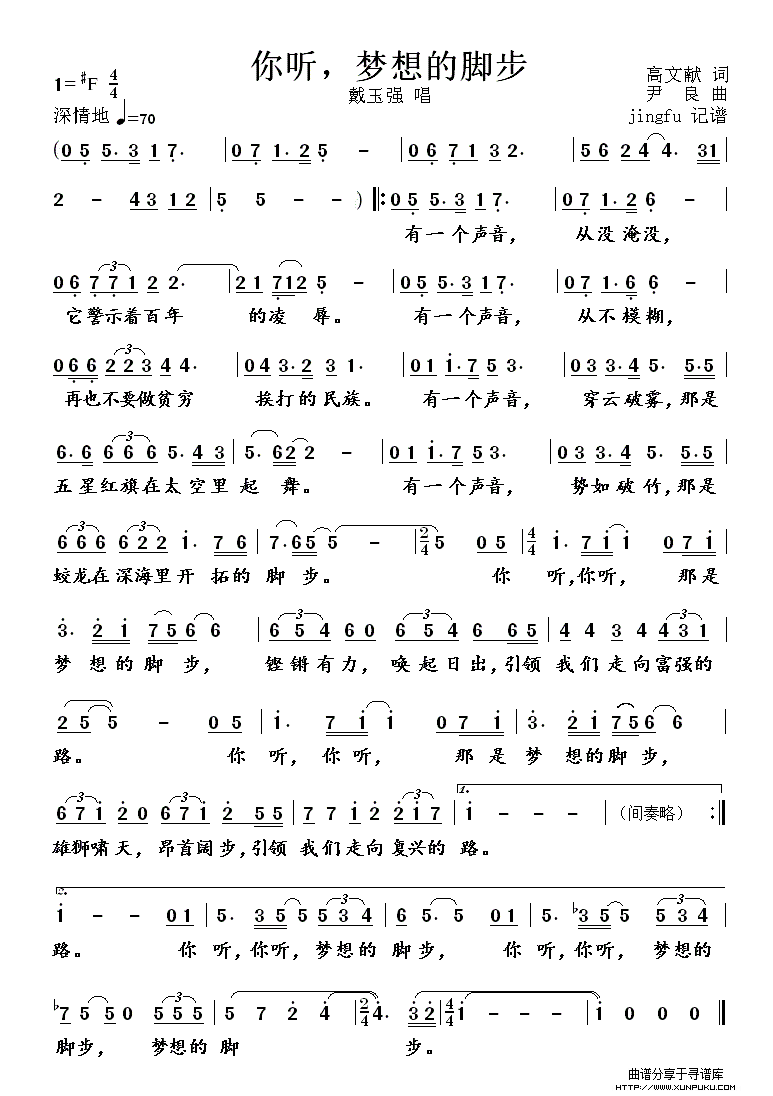 你听，梦想的脚步
1=♯F 4/4
高文献 词
戴玉强 唱
尹 良 曲
深情地 ♩=70
jingfu 记谱
(0 5 5· 3 1 7· | 0 7 1· 2 5 - | 0 6 7 1 3 2· | 5 6 2 4 4· 31 |
2 - 4 3 1 2 | 5 5 - - ) ‖: 0 5 5· 3 1 7· | 0 7 1· 2 6 - |
有一个声音， 从没淹没，
0 6 7 7 1 2 2· | 2 1 7 1 2 5 - | 0 5 5· 3 1 7· | 0 7 1· 6 6 - |
它警示着百年 的凌 辱。 有一个声音， 从不模糊，
0 6 6 2 2 3 4 4· | 0 4 3· 2 3 - | 0 1 1· 7 5 3· | 0 3 3· 4 5· 5·5 |
再也不要做贫穷 挨打的民族。 有一个声音， 穿云破雾，那是
6· 6 6 6 6 5· 4 3 | 5· 6 2 2 - | 0 1 1· 7 5 3· | 0 3 3· 4 5· 5·5 |
五星红旗在太空里 起 舞。 有一个声音， 势如破竹，那是
6 6 6 6 2 2 1· 7 6 | 7· 6 5 5 - | 2/4 5 0 5 | 4/4 1· 7 1 1 0 7 1 |
蛟龙在深海里开 拓的 脚 步。 你 听，你听， 那是
3· 2 1 7 5 6 6 | 6 5 4 6 0 6 5 4 6 6 5 | 4 4 3 4 4 3 1 |
梦 想的脚 步， 铿锵有力，唤起日出，引领 我们走向富强的
2 5 5 - 0 5 | 1· 7 1 1 0 7 1 | 3· 2 1 7 5 6 6 |
路。 你 听，你听， 那 是 梦 想的脚 步，
6 7 1 2 0 6 7 1 2 5 5 | 7 7 1 2 2 1 7 | 1. 1 - - - | （间奏略） :‖
雄狮啸天，昂首阔步，引领 我们走向复兴的 路。
2. 1 - - 0 1 | 5· 3 5 5 5 3 4 | 6 5· 5 0 1 | 5· ♭3 5 5 5 3 4 |
路。 你 听，你听，梦想的 脚步， 你 听，你听，梦想的
♭7 5 5 0 5 5 5 | 5 7 2 4 | 2/4 4· 3 2 | 4/4 1 - - - | 1 0 0 0 ‖
脚步， 梦想的 脚 步。
曲谱分享于寻谱库
HTTP://WWW.XUNPUKU.COM